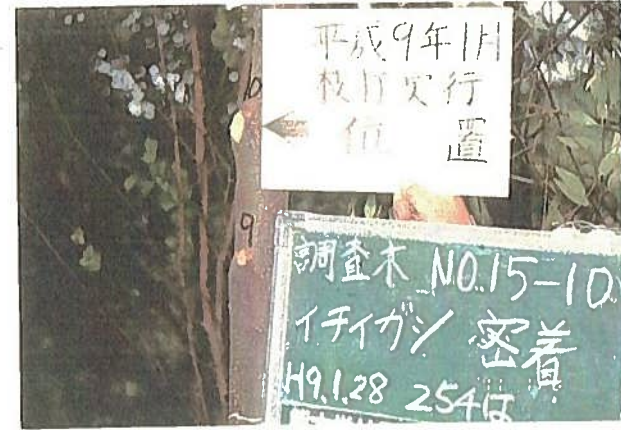 平成9年1月
枝打実行
位 置
10
9
調査木 NO.15-10
イチイガシ 密着
H9.1.28 254は